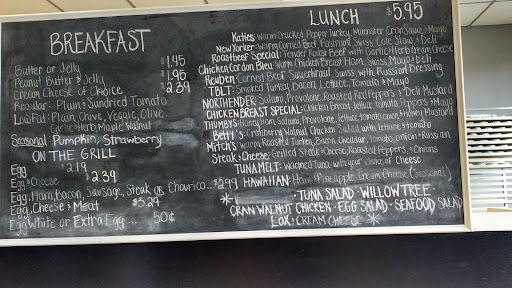 BREAKFAST
Butter or Jelly 1.45
Peanut Butter & Jelly 1.95
Cream Cheese of Choice 2.39
Regular: Plain & Sundried Tomato
LowFat: Plain, Chive, Veggie, Olive
Garlic Herb, Maple Walnut
Seasonal Pumpkin, Strawberry
ON THE GRILL
Egg 2.19
Egg & Cheese 2.39
Egg, Ham, Bacon, Sausage, Steak OR Chourico... $2.99
Egg, Cheese & Meat $3.29
Egg White or Extra Egg... 50¢
LUNCH $5.95
Katie's: Warm Cracked Pepper Turkey, Muenster, Cran Sauce & Mayo
New Yorker: Warm Corned Beef, Pastrami, Swiss, Cole Slaw & Deli
Roastbeef Special: Tender Roast Beef with Garlic Herb Cream Cheese
Chicken Cordon Bleu: Warm Chicken Breast, Ham, Swiss, Mayo & Deli
Reuben: Corned Beef, Sauerkraut, Swiss, with Russian Dressing
TBLT: Smoked Turkey, Bacon, Lettuce, Tomato & Mayo
NORTHENDER: Salami, Provolone, Roasted Red Peppers & Deli Mustard
CHICKEN BREAST SPECIAL: Chicken Breast, lettuce, tomato, Peppers & Mayo
THUMBY'S: Honey Ham, Salami, Provolone, lettuce, tomato, onion & Honey Mustard
Betty's: Cranberry Walnut Chicken Salad with lettuce & tomato
Mitch's: warm Roasted Turkey, Bacon, Cheddar, tomato, onion & Russian
Steak & Cheese: Grilled Steak & Cheese, Roasted Peppers & Onions
TUNA MELT: warmed Tuna with your choice of Cheese
HAWAIIAN: Ham & Pineapple Cream Cheese (Seasonal)
TUNA SALAD · WILLOW TREE ·
CRAN WALNUT CHICKEN · EGG SALAD · SEAFOOD SALAD
LOX & CREAM CHEESE